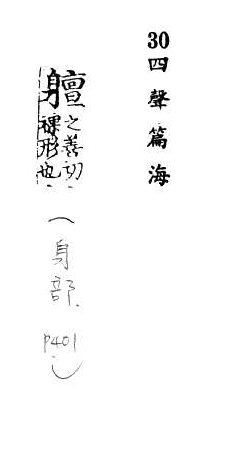 30四聲篇海
軆之善切
裸形也
（身部.
P401）